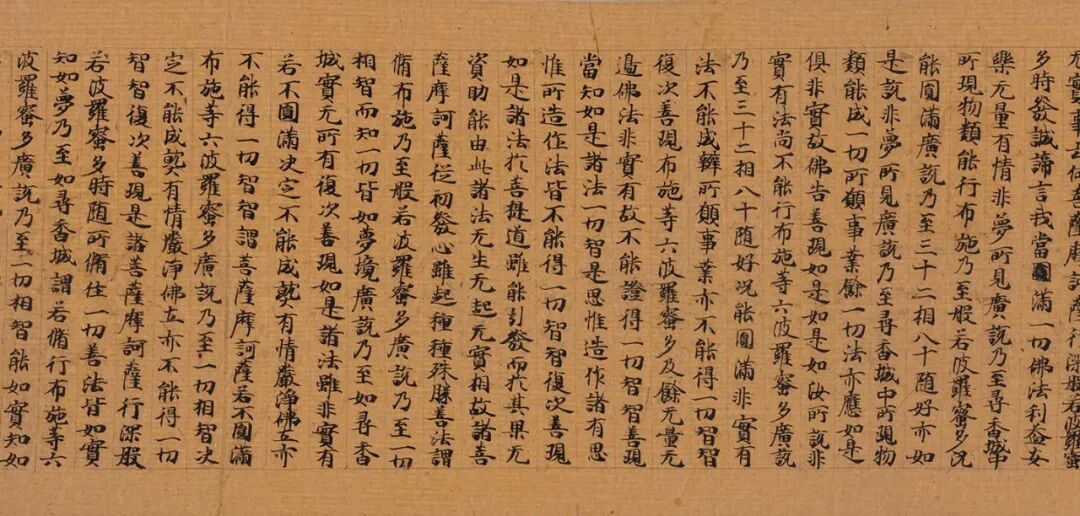 无實事云何菩薩摩訶薩行深般若波羅蜜
多時發誠諦言我當圓滿一切佛法利益安
樂无量有情非夢所見廣說乃至尋香城中
所現物類能行布施乃至般若波羅蜜多況
能圓滿廣說乃至三十二相八十随好亦如
是說非夢所見廣說乃至尋香城中所現物
類能成一切所願事業餘一切法亦應如是
俱非實故佛告善現如是如是如汝所說非
實有法尚不能行布施等六波羅蜜多廣說
乃至三十二相八十随好況能圓滿非實有
法不能成辦所願事業亦不能得一切智智
復次善現布施等六波羅蜜多及餘无量无
邊佛法非實有故不能證得一切智智善現
當知如是諸法一切智是思惟造作諸有思
惟所造作法皆不能得一切智智復次善現
如是諸法於菩提道雖能引發而於其果无
資助能由此諸法无生无起无實相故諸菩
薩摩訶薩從初發心雖起種種殊勝善法謂
脩布施乃至般若波羅蜜多廣說乃至一切
相智而知一切皆如夢境廣說乃至如尋香
城實无所有復次善現如是諸法雖非實有
若不圓滿決定不能成就有情嚴淨佛土亦
不能得一切智智謂菩薩摩訶薩若不圓滿
布施等六波羅蜜多廣說乃至一切相智決
定不能成就有情嚴淨佛土亦不能得一切
智智復次善現是諸菩薩摩訶薩行深般
若波羅蜜多時随所脩住一切善法皆如實
知如夢乃至如尋香城謂若脩行布施等六
波羅蜜多廣說乃至一切相智能如實知如